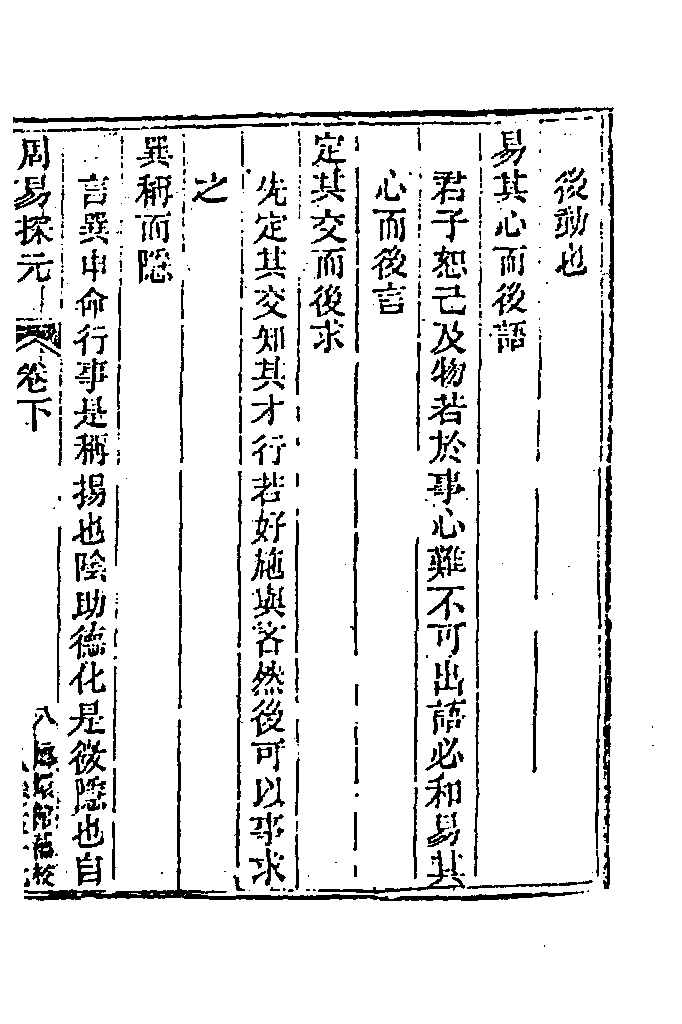 後動也
易其心而後語
君子恕己及物若於事心難不可出語必和易其
心而後言
定其交而後求
先定其交知其才行若好施與吝然後可以事求
之
巽稱而隱
言巽申命行事是稱揚也陰助德化是微隱也自
周易探元
卷下
八